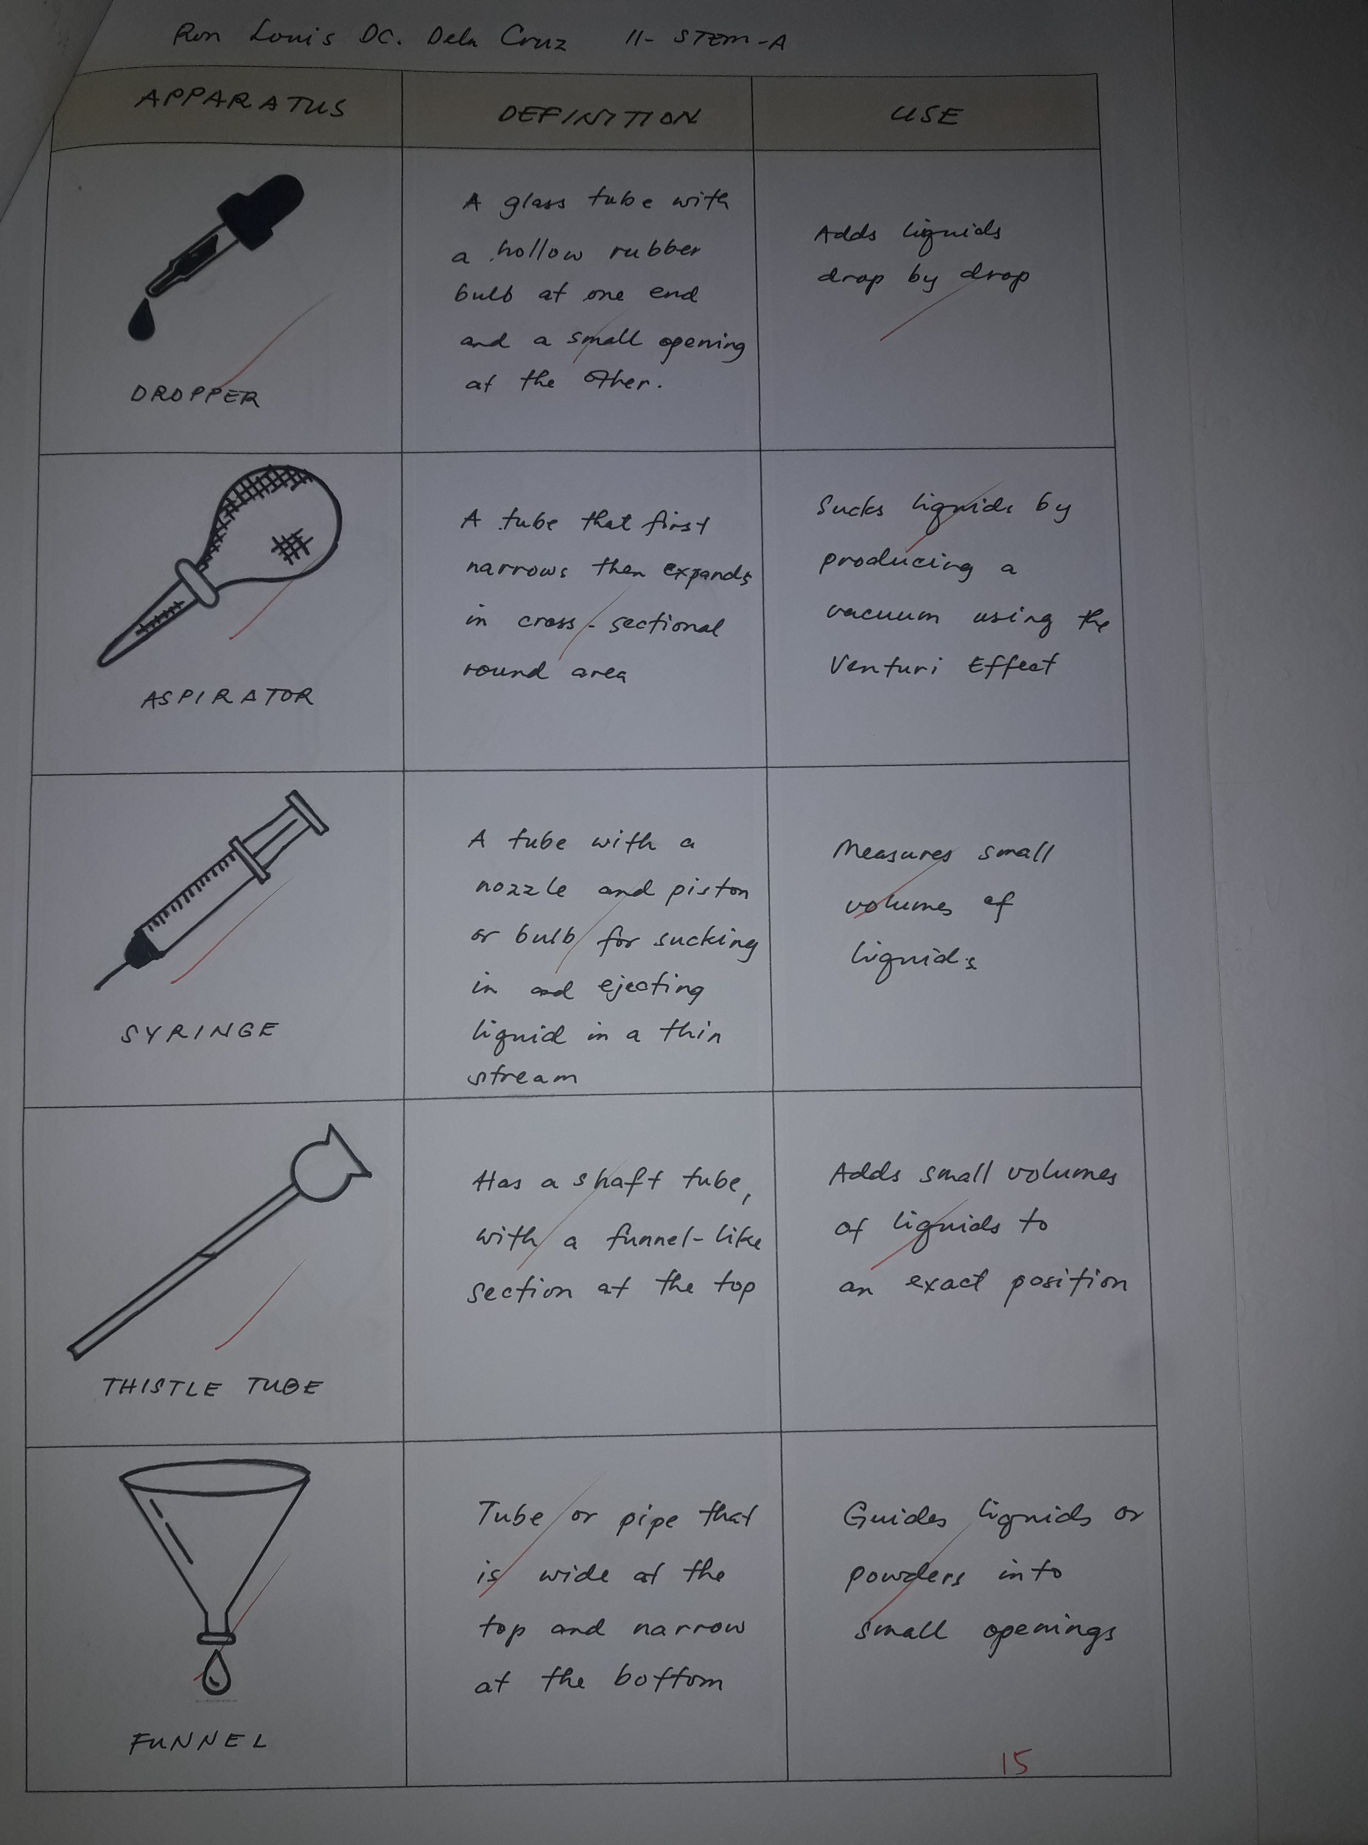 Ron Louis DC. Dela Cruz 11-STEM-A
APPARATUS DEFINITION USE
DROPPER
A glass tube with
a hollow rubber
bulb at one end
and a small opening
at the other.
Adds liquids
drop by drop
ASPIRATOR
A tube that first
narrows then expands
in cross-sectional
round area
Sucks liquids by
producing a
vacuum using the
Venturi Effect
SYRINGE
A tube with a
nozzle and piston
or bulb for sucking
in and ejecting
liquid in a thin
stream
Measures small
volumes of
liquids
THISTLE TUBE
Has a shaft tube,
with a funnel-like
section at the top
Adds small volumes
of liquids to
an exact position
FUNNEL
Tube or pipe that
is wide at the
top and narrow
at the bottom
Guides liquids or
powders into
small openings
15